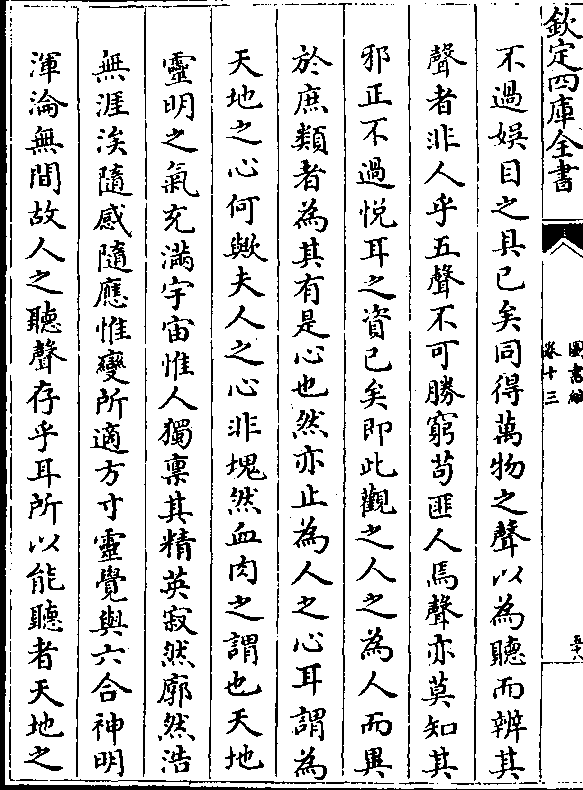 欽定四庫全書
圖書編
卷十三
不過娱目之具已矣同得萬物之聲以為聽而辨其
聲者非人乎五聲不可勝窮茍匪人焉聲亦莫知其
邪正不過悦耳之資已矣即此觀之人之為人而異
於庶類者為其有是心也然亦止為人之心耳謂為
天地之心何歟夫人之心非塊然血肉之謂也天地
靈明之氣充滿宇宙惟人獨禀其精英寂然廓然浩
無涯涘隨感隨應惟變所適方寸靈覺與六合神明
渾淪無間故人之聽聲存乎耳所以能聽者天地之